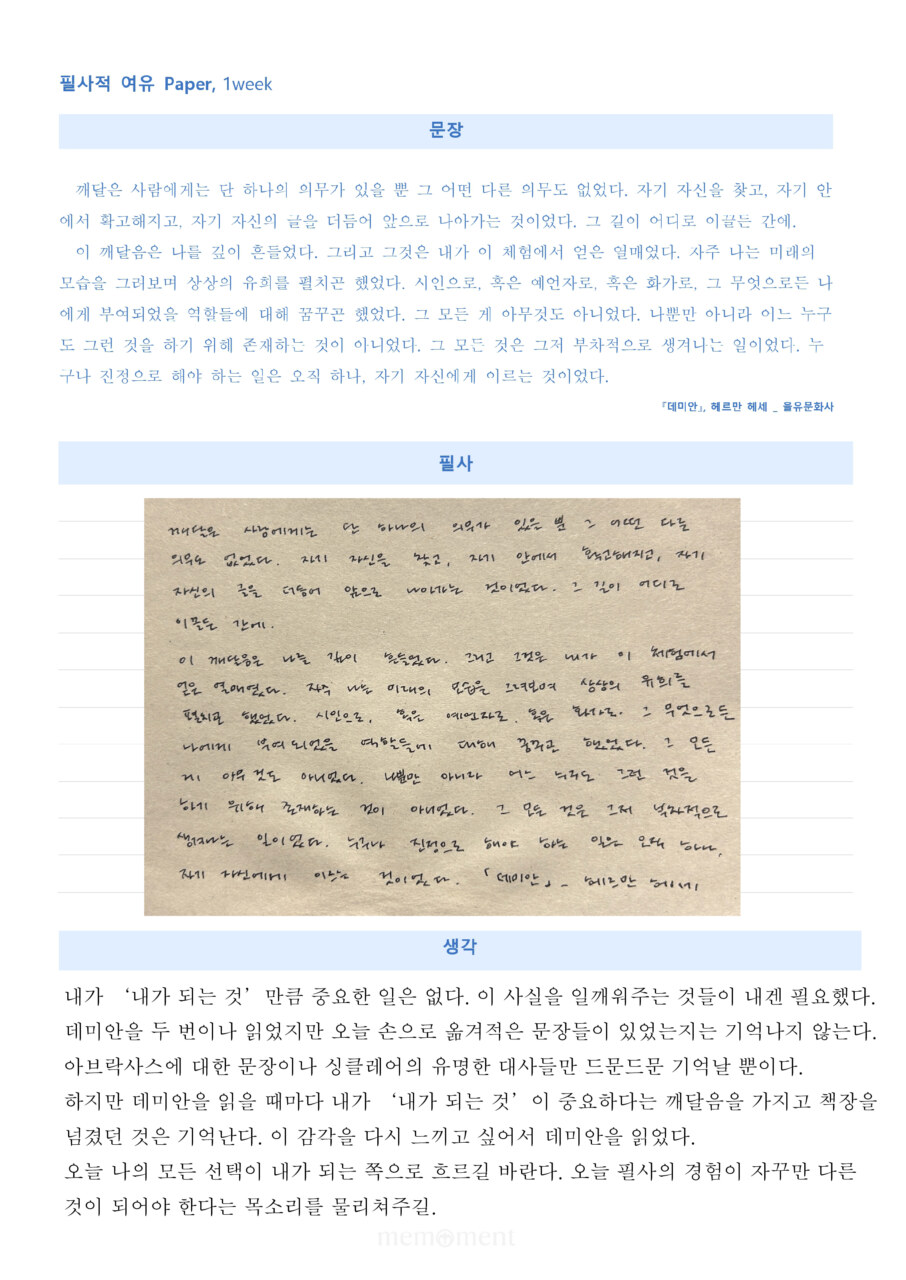 필사적 여유 Paper, 1week
문장
깨달은 사람에게는 단 하나의 의무가 있을 뿐 그 어떤 다른 의무도 없었다. 자기 자신을 찾고, 자기 안
에서 확고해지고, 자기 자신의 글을 더듬어 앞으로 나아가는 것이었다. 그 길이 어디로 이끌든 간에.
이 깨달음은 나를 깊이 흔들었다. 그리고 그것은 내가 이 체험에서 얻은 열매였다. 자주 나는 미래의
모습을 그려보며 상상의 유희를 펼치곤 했었다. 시인으로, 혹은 예언자로, 혹은 화가로, 그 무엇으로든 나
에게 부여되었을 역할들에 대해 꿈꾸곤 했었다. 그 모든 게 아무것도 아니었다. 나뿐만 아니라 어느 누구
도 그런 것을 하기 위해 존재하는 것이 아니었다. 그 모든 것은 그저 부차적으로 생겨나는 일이었다. 누
구나 진정으로 해야 하는 일은 오직 하나, 자기 자신에게 이르는 것이었다.
『데미안』, 헤르만 헤세 _ 을유문화사
필사
깨달은 사람에게는 단 하나의 의무가 있을 뿐 그 어떤 다른
의무도 없었다. 자기 자신을 찾고, 자기 안에서 확고해지고, 자기
자신의 글을 더듬어 앞으로 나아가는 것이었다. 그 길이 어디로
이끌든 간에.
이 깨달음은 나를 깊이 흔들었다. 그리고 그것은 내가 이 체험에서
얻은 열매였다. 자주 나는 미래의 모습을 그려보며 상상의 유희를
펼치곤 했었다. 시인으로, 혹은 예언자로, 혹은 화가로. 그 무엇으로든
나에게 부여되었을 역할들에 대해 꿈꾸곤 했었다. 그 모든
게 아무것도 아니었다. 나뿐만 아니라 어느 누구도 그런 것을
하기 위해 존재하는 것이 아니었다. 그 모든 것은 그저 부차적으로
생겨나는 일이었다. 누구나 진정으로 해야 하는 일은 오직 하나,
자기 자신에게 이르는 것이었다. 「데미안」 - 헤르만 헤세
생각
내가 ‘내가 되는 것’ 만큼 중요한 일은 없다. 이 사실을 일깨워주는 것들이 내겐 필요했다.
데미안을 두 번이나 읽었지만 오늘 손으로 옮겨적은 문장들이 있었는지는 기억나지 않는다.
아브락사스에 대한 문장이나 싱클레어의 유명한 대사들만 드문드문 기억날 뿐이다.
하지만 데미안을 읽을 때마다 내가 ‘내가 되는 것’ 이 중요하다는 깨달음을 가지고 책장을
넘겼던 것은 기억난다. 이 감각을 다시 느끼고 싶어서 데미안을 읽었다.
오늘 나의 모든 선택이 내가 되는 쪽으로 흐르길 바란다. 오늘 필사의 경험이 자꾸만 다른
것이 되어야 한다는 목소리를 물리쳐주길.
memoment